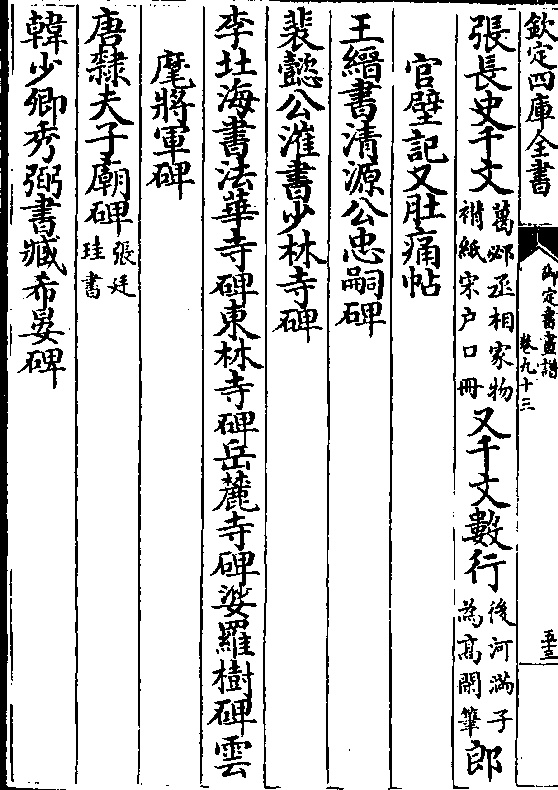 欽定四庫全書
御定書畫譜
卷九十三
張長史千文萬邲丞相家物褙紙宋户口冊又千文數行後河滿子為髙閑筆郎
官壁記又肚痛帖
王縉書清源公忠嗣碑
裴懿公漼書少林寺碑
李北海書法華寺碑東林寺碑岳麓寺碑娑羅樹碑雲
麾將軍碑
唐隸夫子廟碑張廷珪書
韓少卿秀弼書臧希晏碑